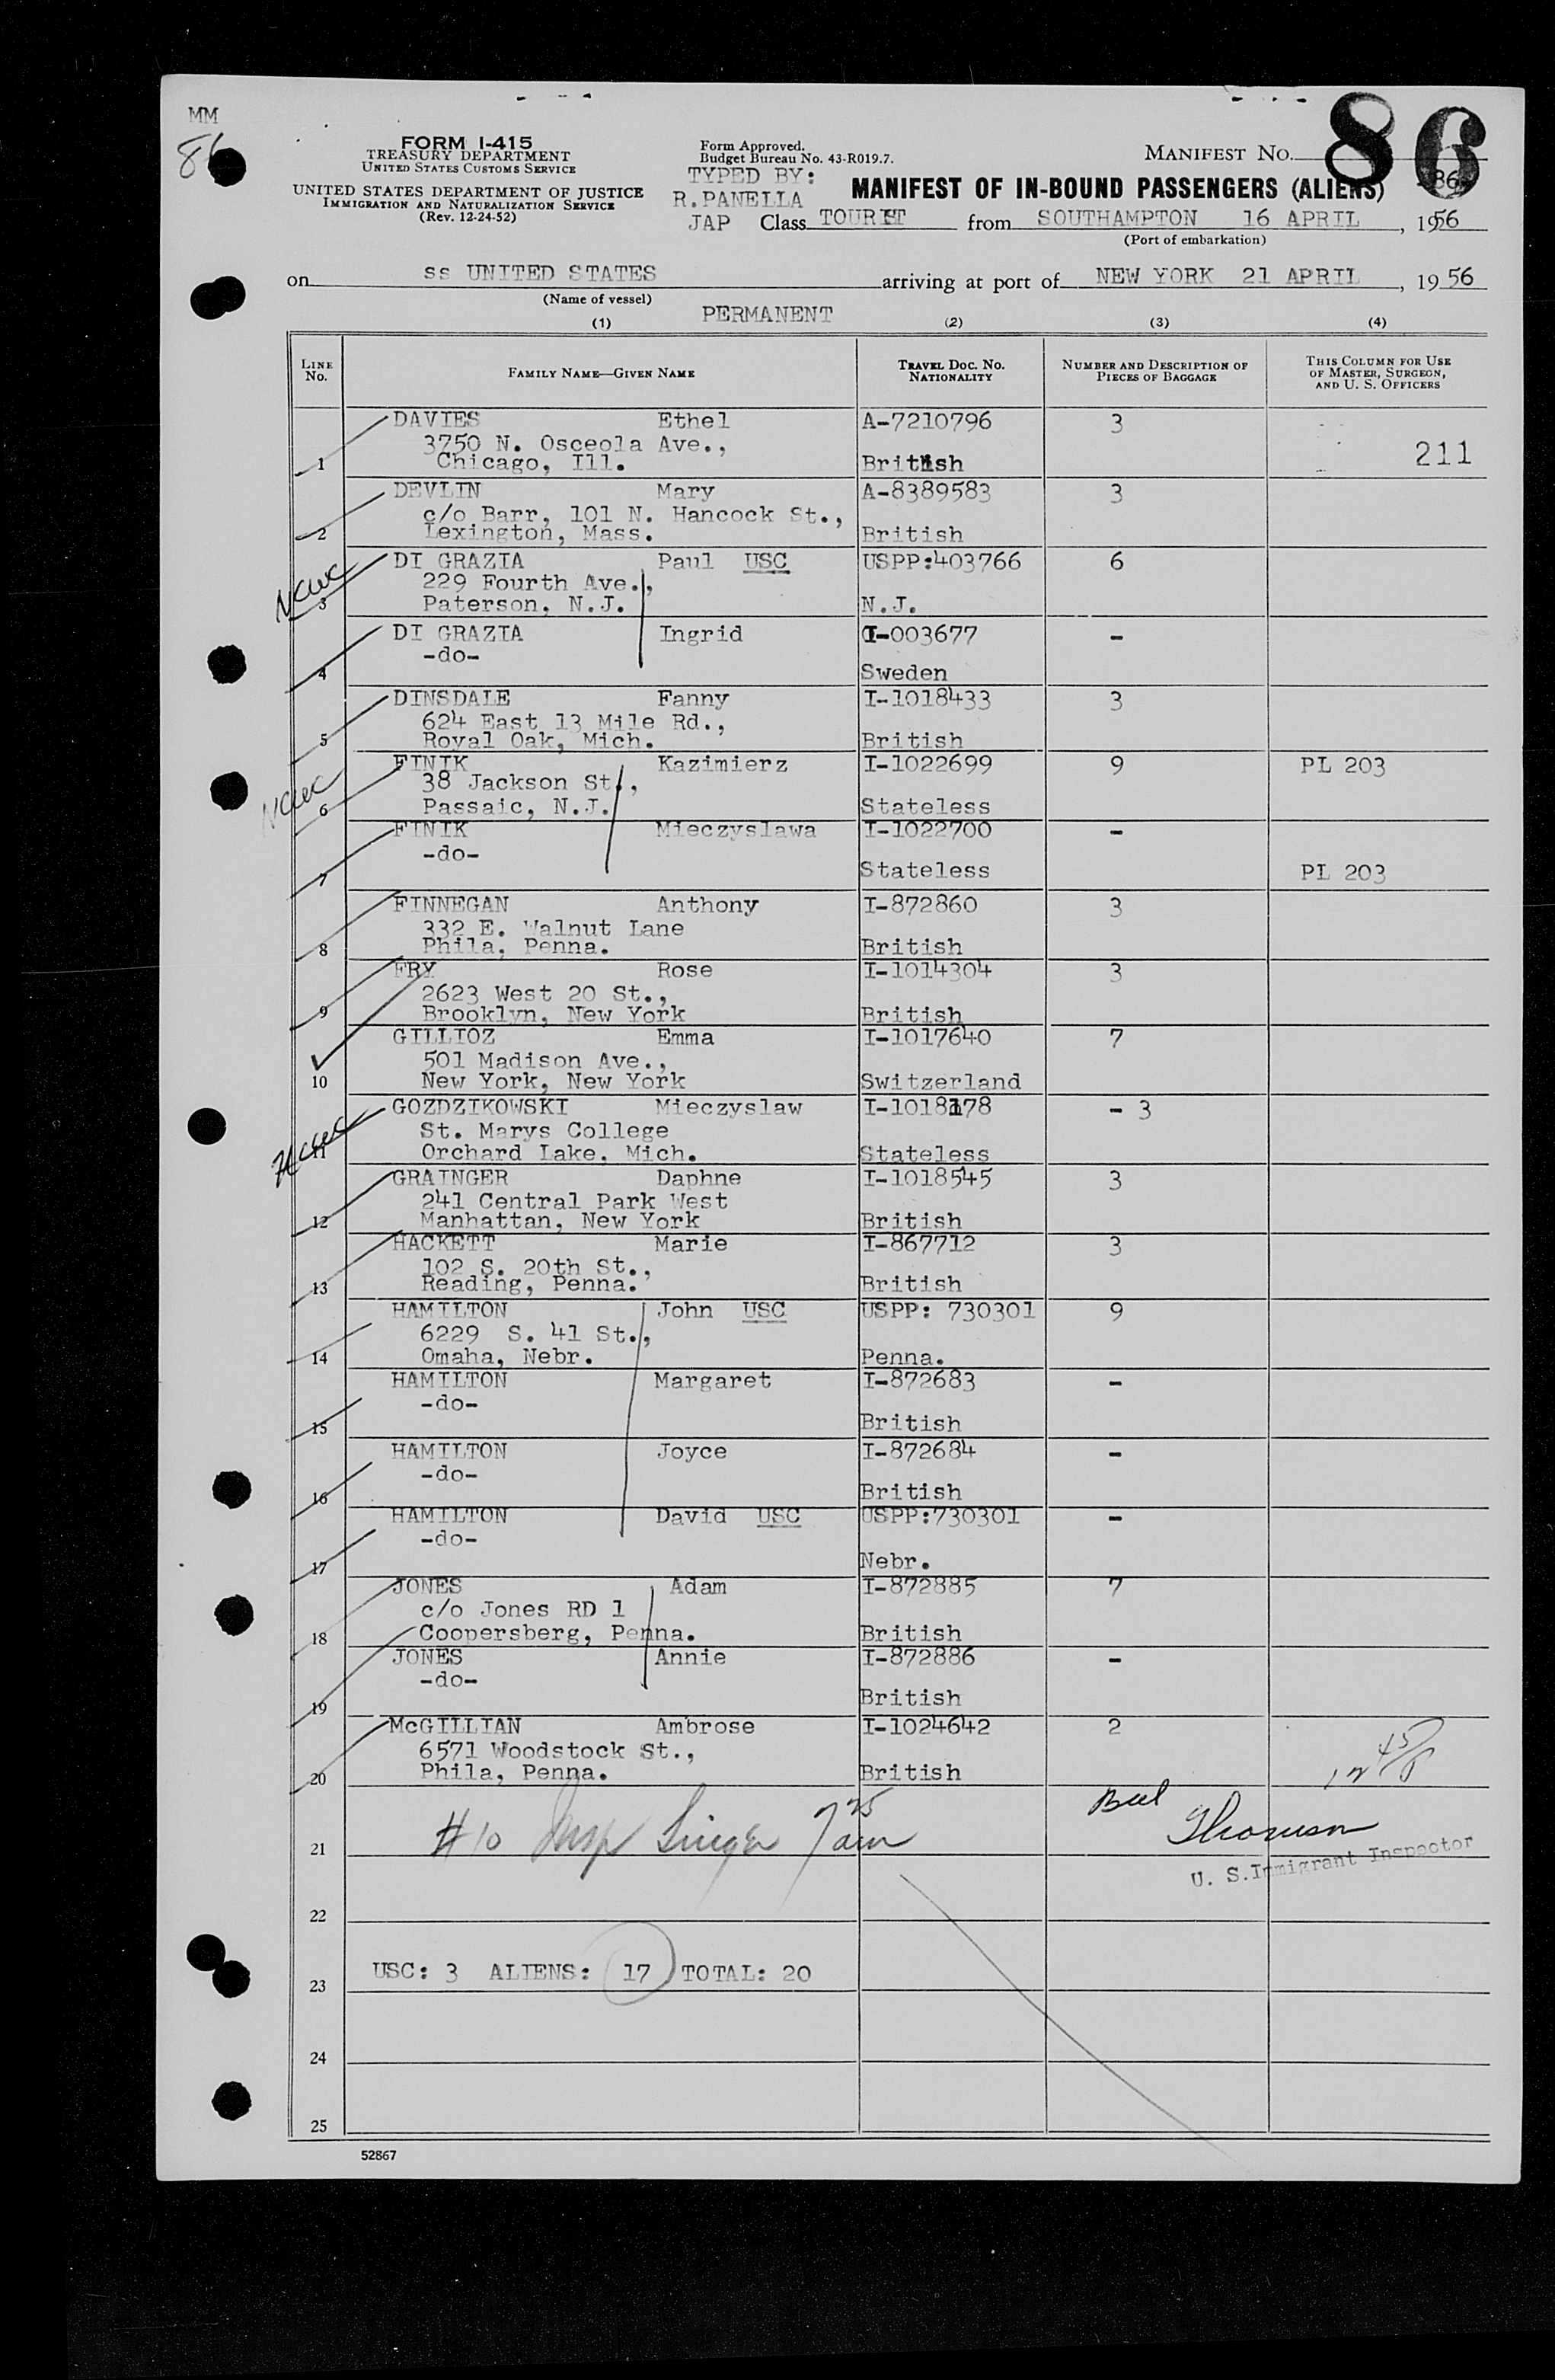 MM
86
FORM I-415
TREASURY DEPARTMENT
UNITED STATES CUSTOMS SERVICE
UNITED STATES DEPARTMENT OF JUSTICE
IMMIGRATION AND NATURALIZATION SERVICE
(Rev. 12-24-52)
Form Approved.
Budget Bureau No. 43-R019.7.
TYPED BY:
R.PANELLA
JAP
MANIFEST NO. 86
86
MANIFEST OF IN-BOUND PASSENGERS (ALIENS)
Class TOURIST from SOUTHAMPTON 16 APRIL, 1956
(Port of embarkation)
on ss UNITED STATES arriving at port of NEW YORK 21 APRIL, 1956
(Name of vessel)
PERMANENT
(1) (2) (3) (4)
LINE NO. FAMILY NAME—GIVEN NAME TRAVEL DOC. NO. NATIONALITY NUMBER AND DESCRIPTION OF PIECES OF BAGGAGE THIS COLUMN FOR USE OF MASTER, SURGEON, AND U. S. OFFICERS
DAVIES Ethel A-7210796 3
3750 N. Osceola Ave.,
1 Chicago, Ill. British 211
DEVLIN Mary A-8389583 3
c/o Barr, 101 N. Hancock St.,
2 Lexington, Mass. British
NCWC
DI GRAZIA Paul USC USPP:403766 6
229 Fourth Ave.,
3 Paterson, N.J. N.J.
DI GRAZIA Ingrid I-003677 -
-do-
4 Sweden
DINSDALE Fanny I-1018433 3
624 East 13 Mile Rd.,
5 Royal Oak, Mich. British
NCWC
FINIK Kazimierz I-1022699 9 PL 203
38 Jackson St.,
6 Passaic, N.J. Stateless
FINIK Mieczyslawa I-1022700 -
-do-
7 Stateless PL 203
FINNEGAN Anthony I-872860 3
332 E. Walnut Lane
8 Phila, Penna. British
FRY Rose I-1014304 3
2623 West 20 St.,
9 Brooklyn, New York British
GILLIOZ Emma I-1017640 7
501 Madison Ave.,
10 New York, New York Switzerland
NCWC
GOZDZIKOWSKI Mieczyslaw I-1018178 - 3
St. Marys College
11 Orchard Lake, Mich. Stateless
GRAINGER Daphne I-1018545 3
241 Central Park West
12 Manhattan, New York British
HACKETT Marie I-867712 3
102 S. 20th St.,
13 Reading, Penna. British
HAMILTON John USC USPP: 730301 9
6229 S. 41 St.,
14 Omaha, Nebr. Penna.
HAMILTON Margaret I-872683 -
-do-
15 British
HAMILTON Joyce I-872684 -
-do-
16 British
HAMILTON David USC USPP:730301 -
-do-
17 Nebr.
JONES Adam I-872885 7
c/o Jones RD 1
18 Coopersberg, Penna. British
JONES Annie I-872886 -
-do-
19 British
McGILLIAN Ambrose I-1024642 2
6571 Woodstock St.,
20 Phila, Penna. British
#10 Insp Singer 7 25 am
21
Thomson
U. S. Immigrant Inspector
22
23 USC: 3 ALIENS: 17 TOTAL: 20
24
25
52867